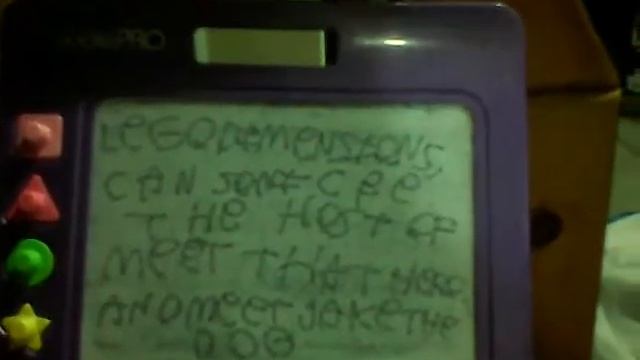 PRO
LEGODIMENSIONS
CAN
THE HOST OF
MEET THAT HERO
ANDMEET JAKETHE
DOG